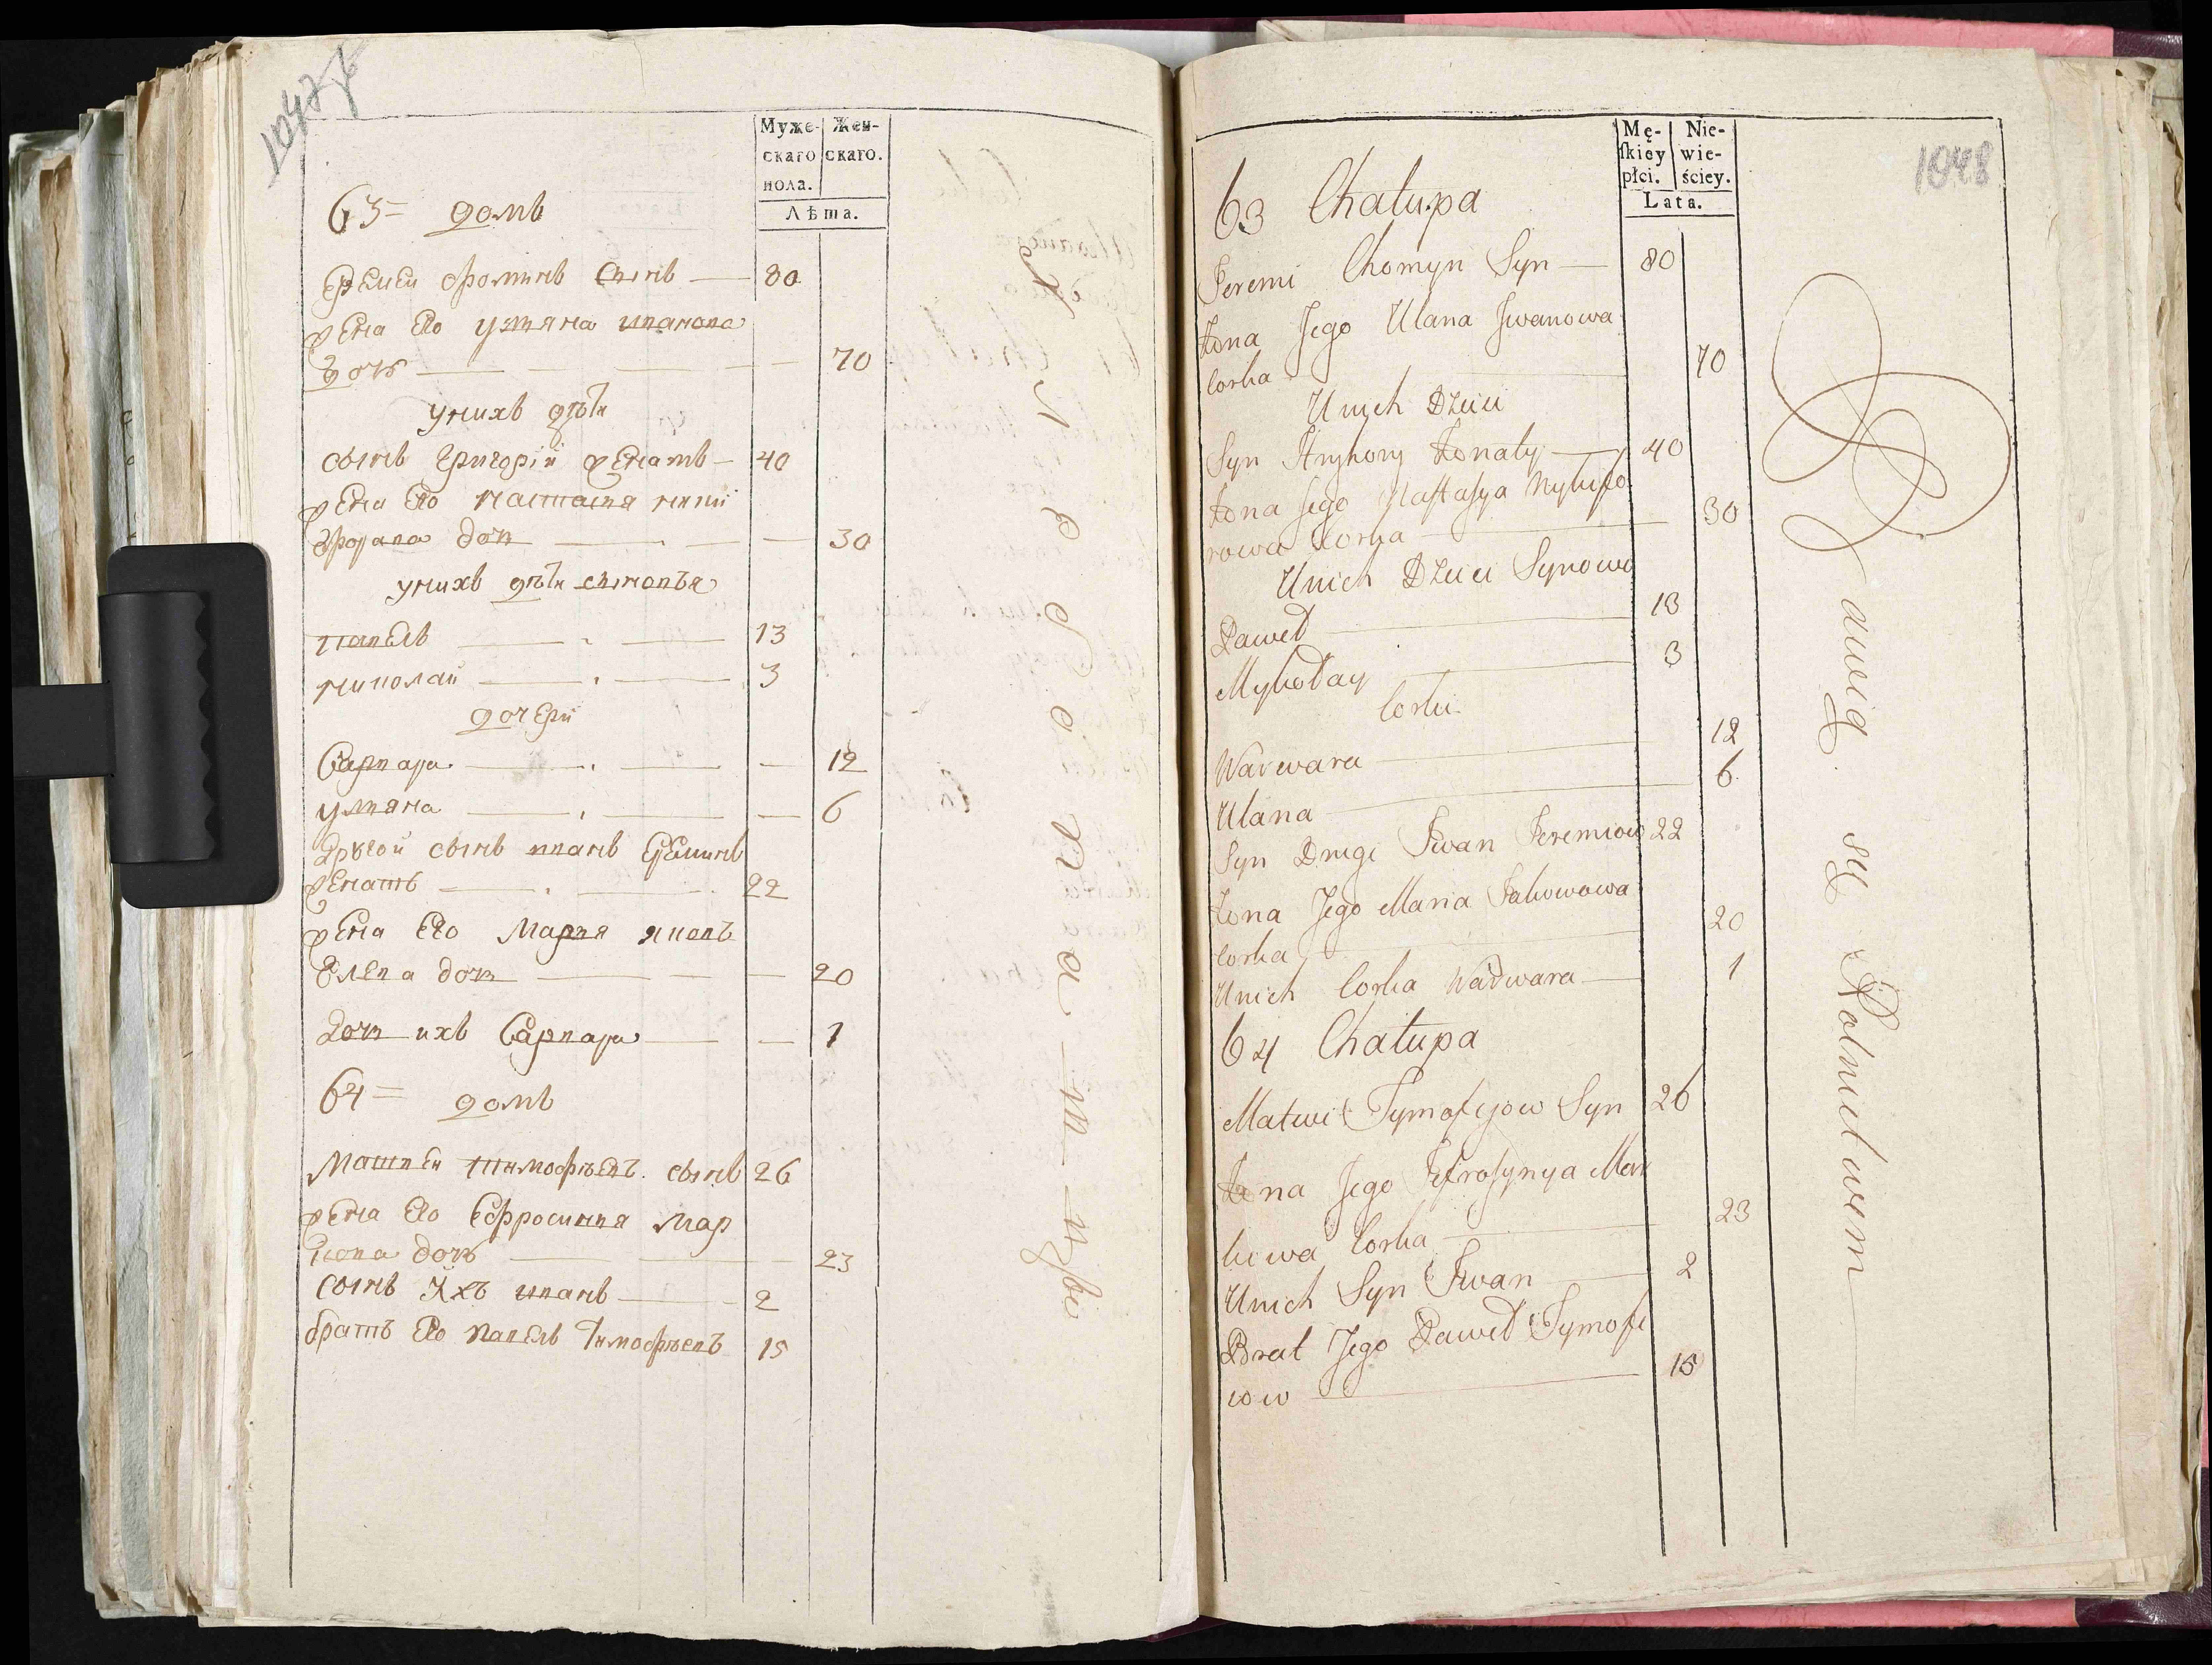 1047 б
Муже-
скаго
пола.
Жен-
скаго.
Лѣта.
63= домъ
Еремеи Фоминъ сынъ — 80
жена Его уляна иванова
дочь — 70
унихъ дѣти
сынъ Григорій женатъ — 40
жена Его настася ники
форава дочь — 30
унихъ дѣти сыновья
павелъ — 13
николаи — 3
дочери
Варвара — 12
уляна — 6
другой сынъ иванъ Ереминъ
женатъ — 22
жена Его Марья яковъ
Влева дочь — 20
дочь ихъ Варвара — 1
64= домъ
Матвеи тимофѣевъ сынъ 26
жена Его Ефросинья Мар
кова дочь — 23
сынъ Ихъ иванъ — 2
братъ Его павелъ тимофѣевъ 15
1048
Mę-
skiey
płci.
Nie-
wie-
ściey.
Lata.
63 Chałupa
Jeremi Chomyn Syn — 80
Żona Jego Ulana Jwanowa
Corka — 70
Unich Dzieci
Syn Hryhory Żonaty — 40
Żona Jego Nastasya Nykifo
rowa Corka — 30
Unich Dzieci Synowe
Paweł — 13
Mykołay — 3
Corki
Warwara — 12
Ulana — 6
Syn Drugi Jwan Jeremiow 22
Żona Jego Maria Jakowowa
Corka — 20
Unich Corka Warwara — 1
64 Chałupa
Matwi Tymofejow Syn 26
Żona Jego Jefrosynya Mar
kowa Corka — 23
Unich Syn Jwan — 2
Brat Jego Paweł Tymofe
iow — 15